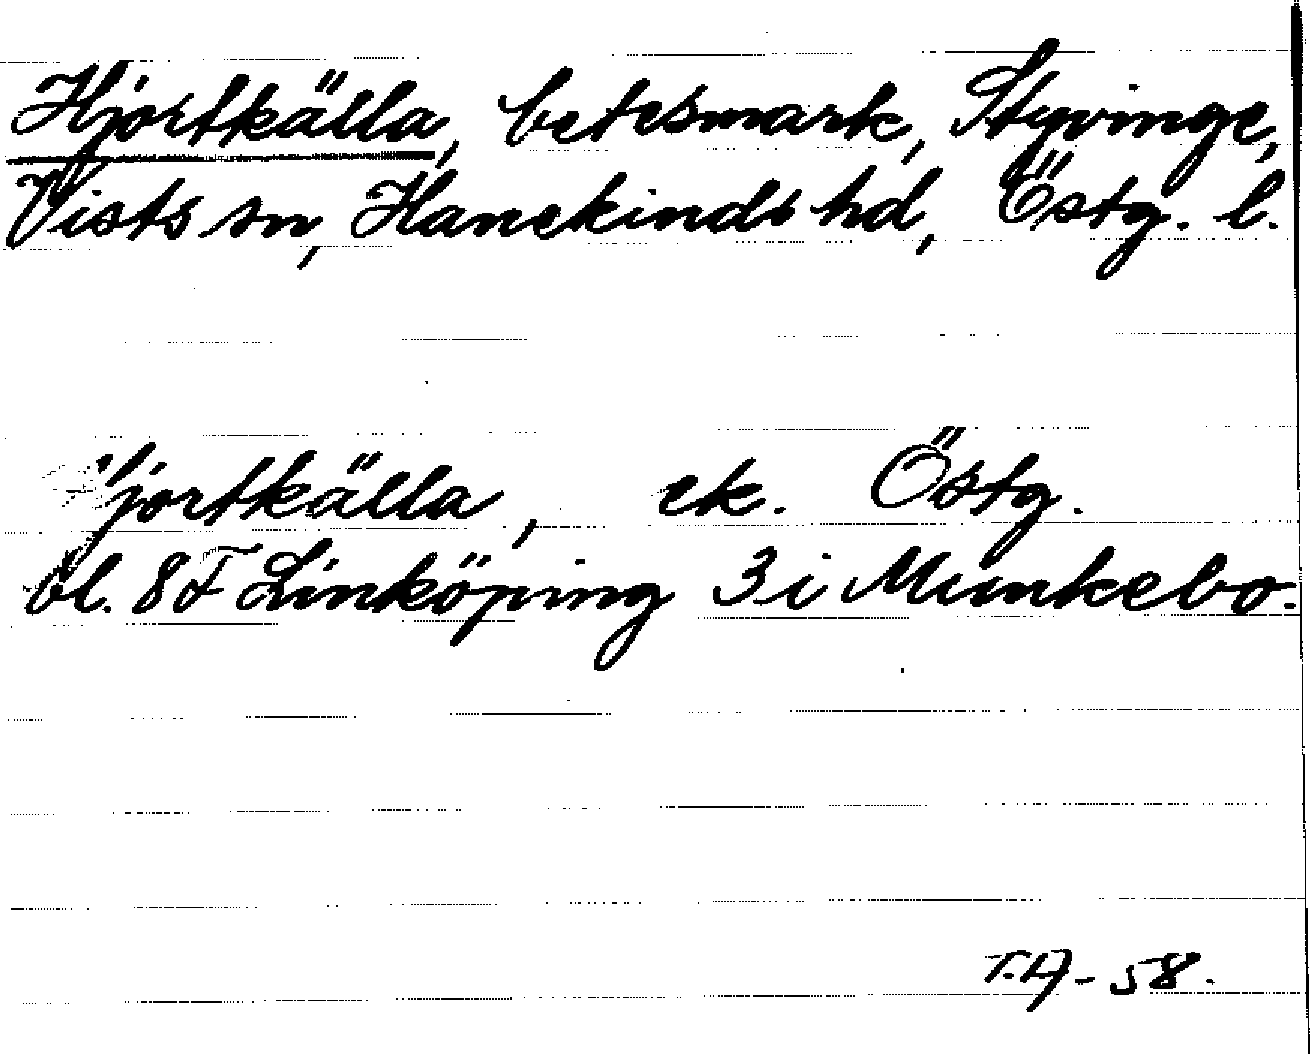 Hjortkälla, betesmark, Styvinge,
Vists sn, Hanekinds hd, Östg. l.
Hjortkälla, ek. Östg.
bl. 8 F Linköping 3 i Munkebo.
T.A-58.